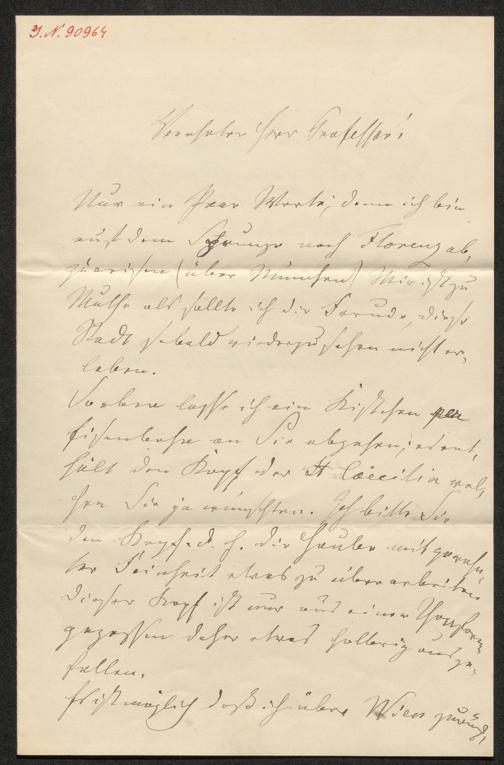 J. N. 90964
Verehrter Herr Professor!
Nur ein Paar Worte; denn ich bin
auf dem Sprunge nach Florenz ab,
zureisen (über München) Mir ist zu
Muthe als sollte ich die Freude, diese
Stadt sobald wiederzusehen nicht er,
leben.
Soeben lasse ich ein Kistchen per
Eisenbahn an Sie abgehen; es ent,
hält den Kopf der St Caecilia wel,
chen Sie ja wünschten. Ich bitte Sie
den Kopf d. h. die Haube mit gewohn,
ter Feinheit etwas zu überarbeiten
Dieser Kopf ist nur aus einer Thonform
gegossen daher etwas holberig ausge,
fallen.
Es ist möglich daß ich über Wien zurück,